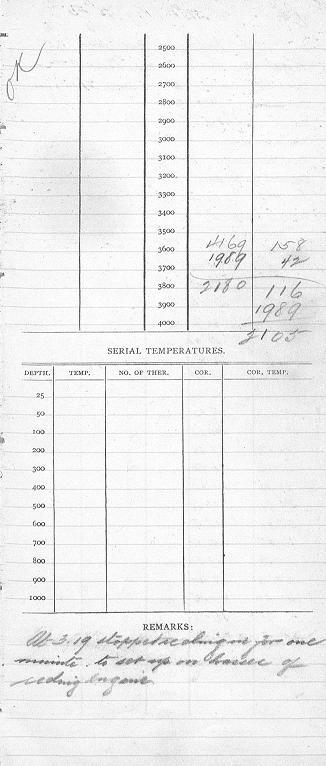 OK
2500
2600
2700
2800
2900
3000
3100
3200
3300
3400
3500
3600 4169 158
3700 1989 42
3800 2180 116
3900 1989
4000 2105
SERIAL TEMPERATURES.
DEPTH. TEMP. NO. OF THER. COR. COR. TEMP.
25
50
100
200
300
400
500
600
700
800
900
1000
REMARKS:
At 3.19 stopped reeling in for one
minute. to set up on brasses of
reeling engine